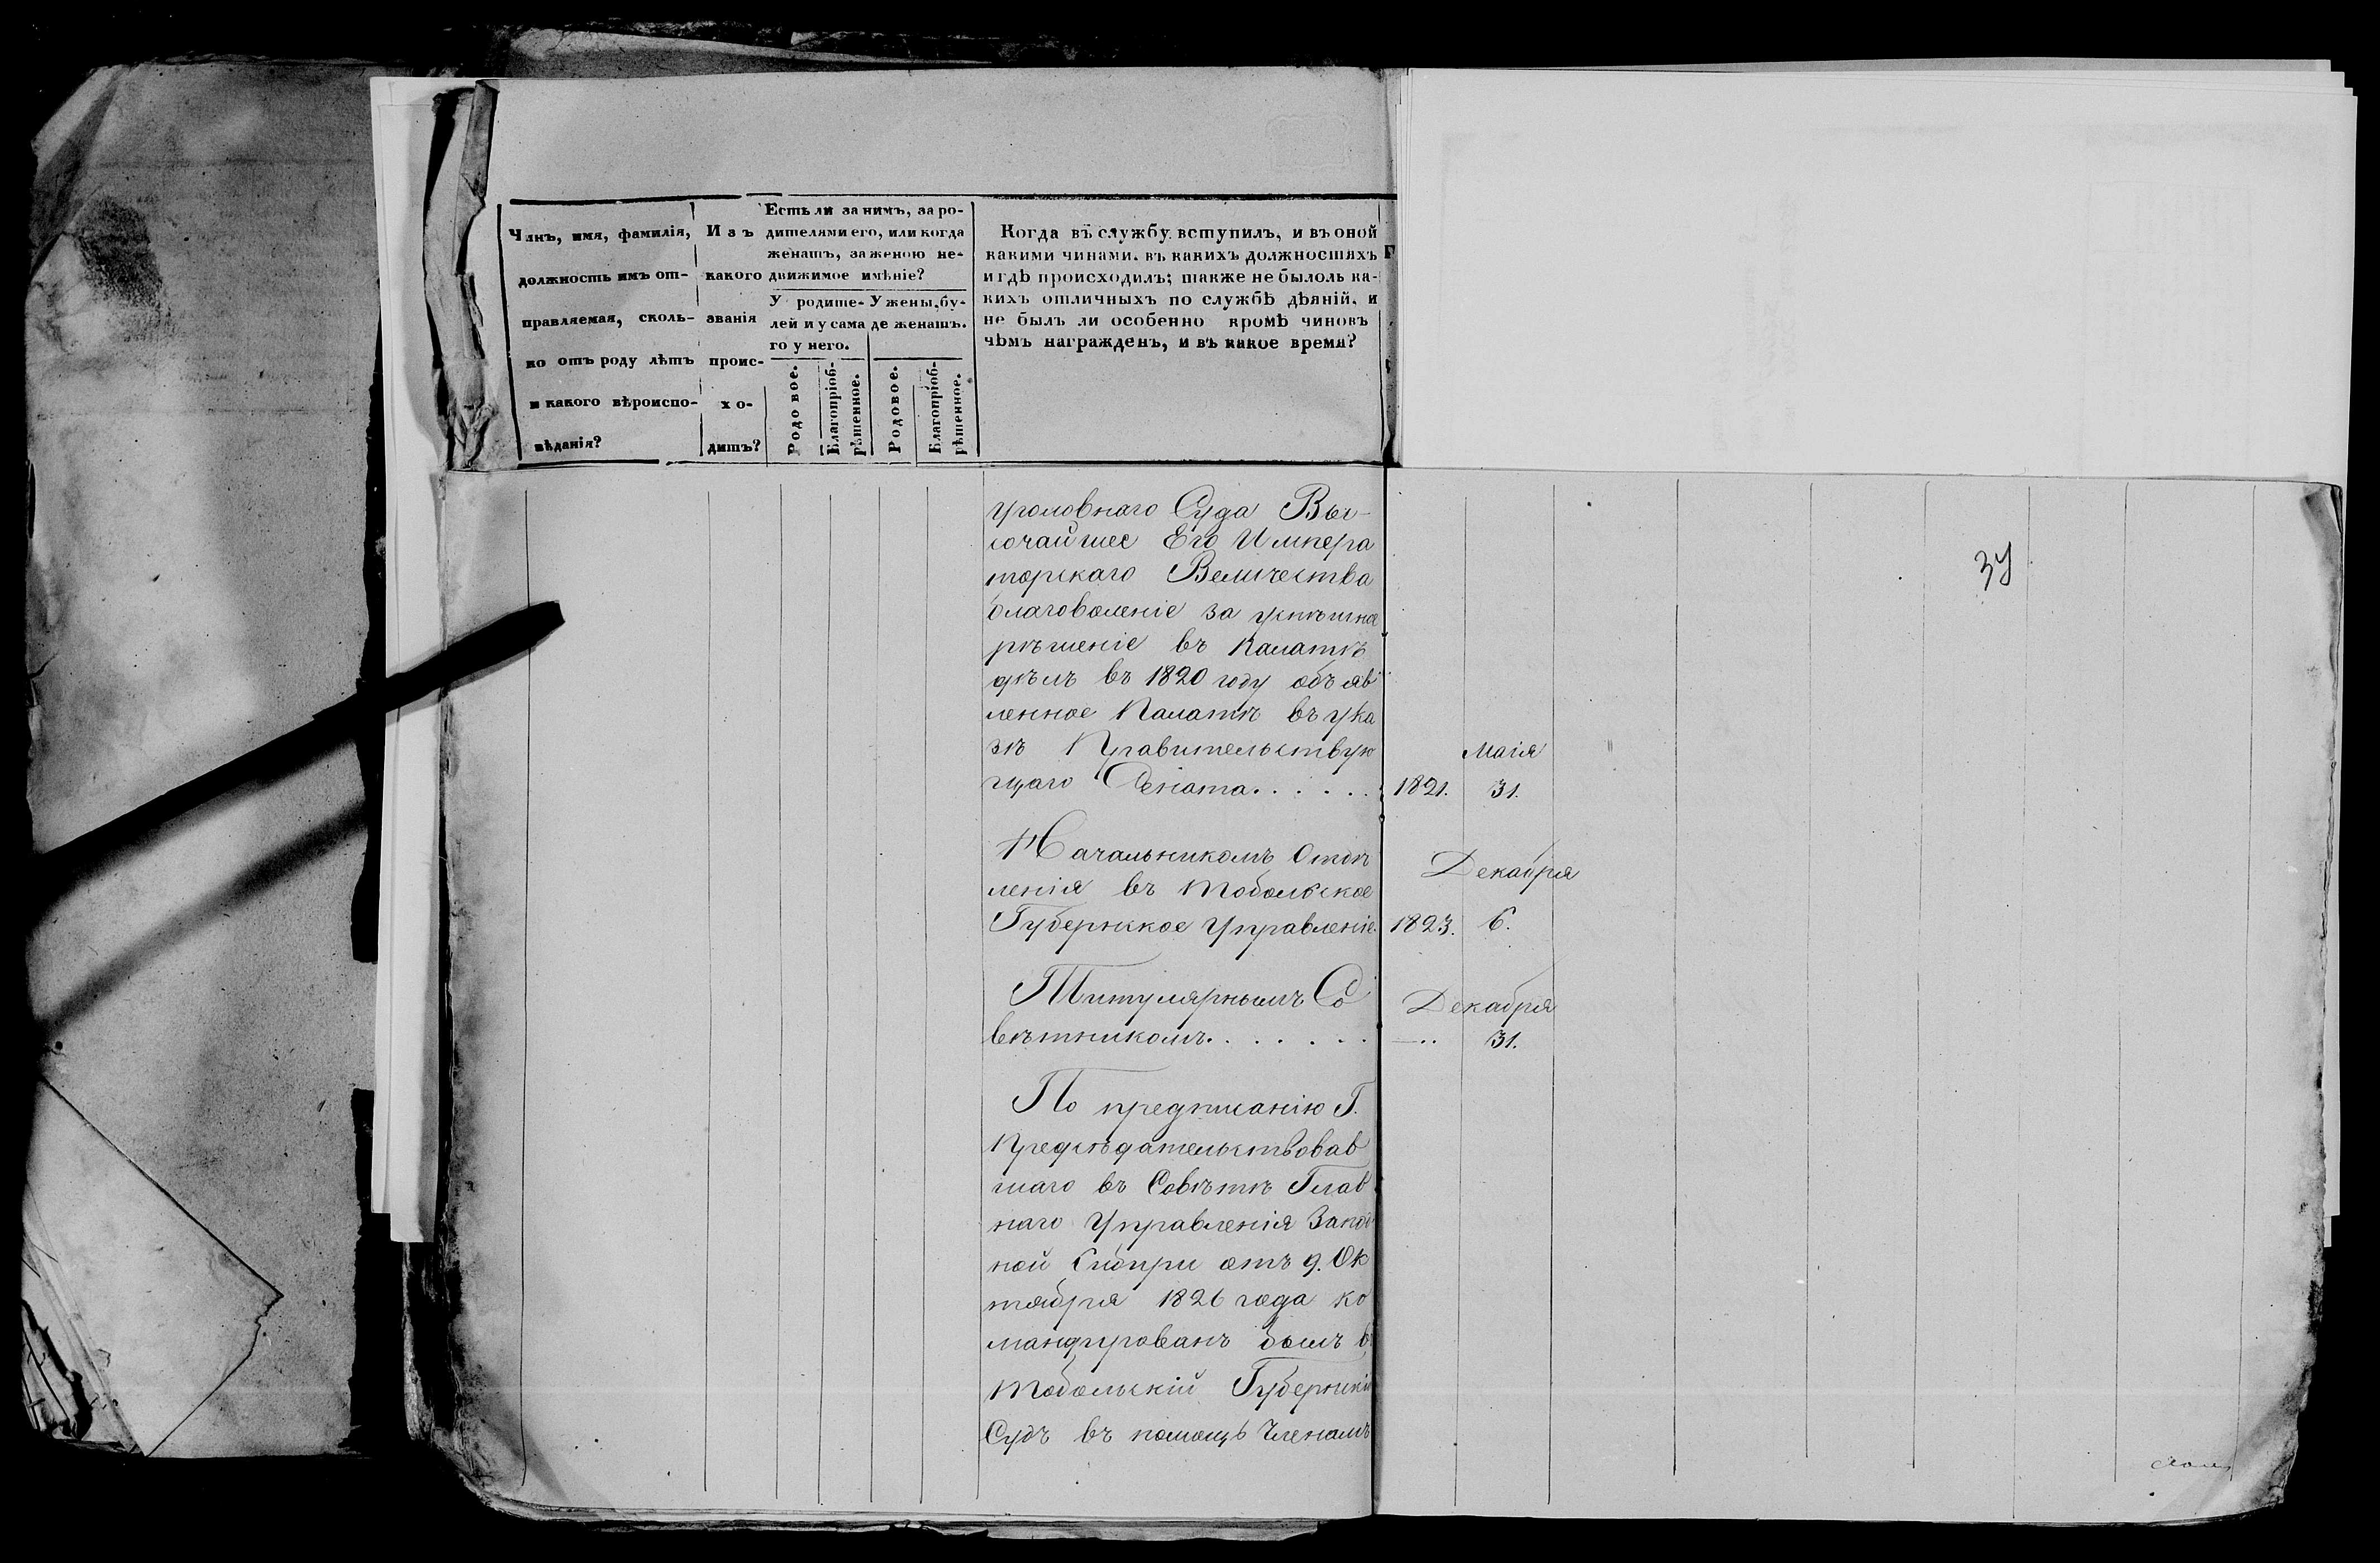 Чинъ, имя, фамилія,
должность имъ от-
правляемая, сколь-
ко отъ роду лѣтъ
и какого вѣроиспо-
вѣданія?
Изъ
какого
званія
проис-
хо-
дитъ?
Есть ли за нимъ, за ро-
дителями его, или когда
женатъ, за женою не-
движимое имѣніе?
У родите-
лей и у сама
го у него.
У жены, бу-
де женатъ.
Родовое.
Благопріоб-
рѣтенное.
Родовое.
Благопріоб-
рѣтенное.
Когда въ службу вступилъ, и въ оной
какими чинами, въ какихъ должностяхъ
и гдѣ происходилъ; также не былоль ка-
кихъ отличныхъ по службѣ дѣяній, и
не былъ ли особенно кромѣ чиновъ
чѣмъ награжденъ, и въ какое время?
34
уголовнаго Суда Вы-
сочайшее Его Импера
торскаго Величества
благоволеніе за успѣшное
рѣшеніе въ Палатѣ
дѣлъ въ 1820 году объяв
ленное Палатѣ въ ука
зѣ Правительствую
щаго Сената. . . . . .
Маія
1821. 31.
Начальникомъ Отдѣ
ленія въ Тобольское
Губернское Управленіе.
Декабря
1823. 6.
Титулярнымъ Со
вѣтникомъ. . . . . . .
Декабря
—.. 31.
По предписанію Г.
Предсѣдательствовав
шаго въ Совѣтѣ Глав
наго Управленія Запад
ной Сибири отъ 9. Ок
тября 1826 года ко
мандированъ былъ въ
Тобольскій Губернскій
Судъ въ помощь Членамъ